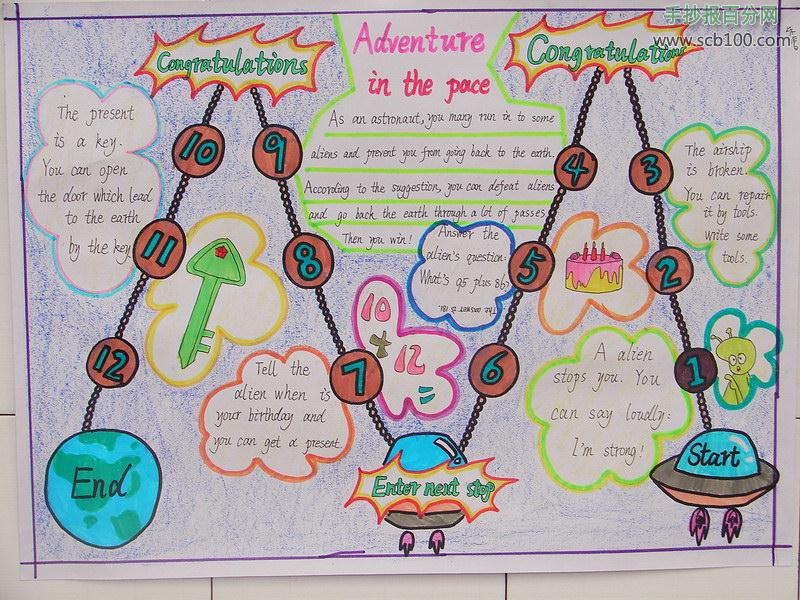 手抄报百分网
www.scb100.com
Adventure
in the pace
As an astronaut, you many run in to some
aliens and prevent you from going back to the earth.
According to the suggestion, you can defeat aliens
and go back the earth through a lot of passes.
Then you win!
Congratulations
Congratulations
The present
is a key.
You can open
the door which lead
to the earth
by the key.
10
9
11
8
12
7
4
3
5
2
6
1
The airship
is broken.
You can repair
it by tools.
Write some
tools.
Answer the
alien's question:
What's 95 plus 86?
The answer is 181.
10
+ 12
=
Tell the
alien when is
your birthday and
you can get a present.
A alien
stops you. You
can say loudly:
I'm strong!
End
Enter next stop
Start